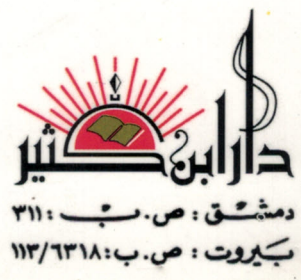 دار ابن كثير
دمشق : ص.ب : ٣١١
بيروت : ص.ب : ١١٣/٦٣١٨